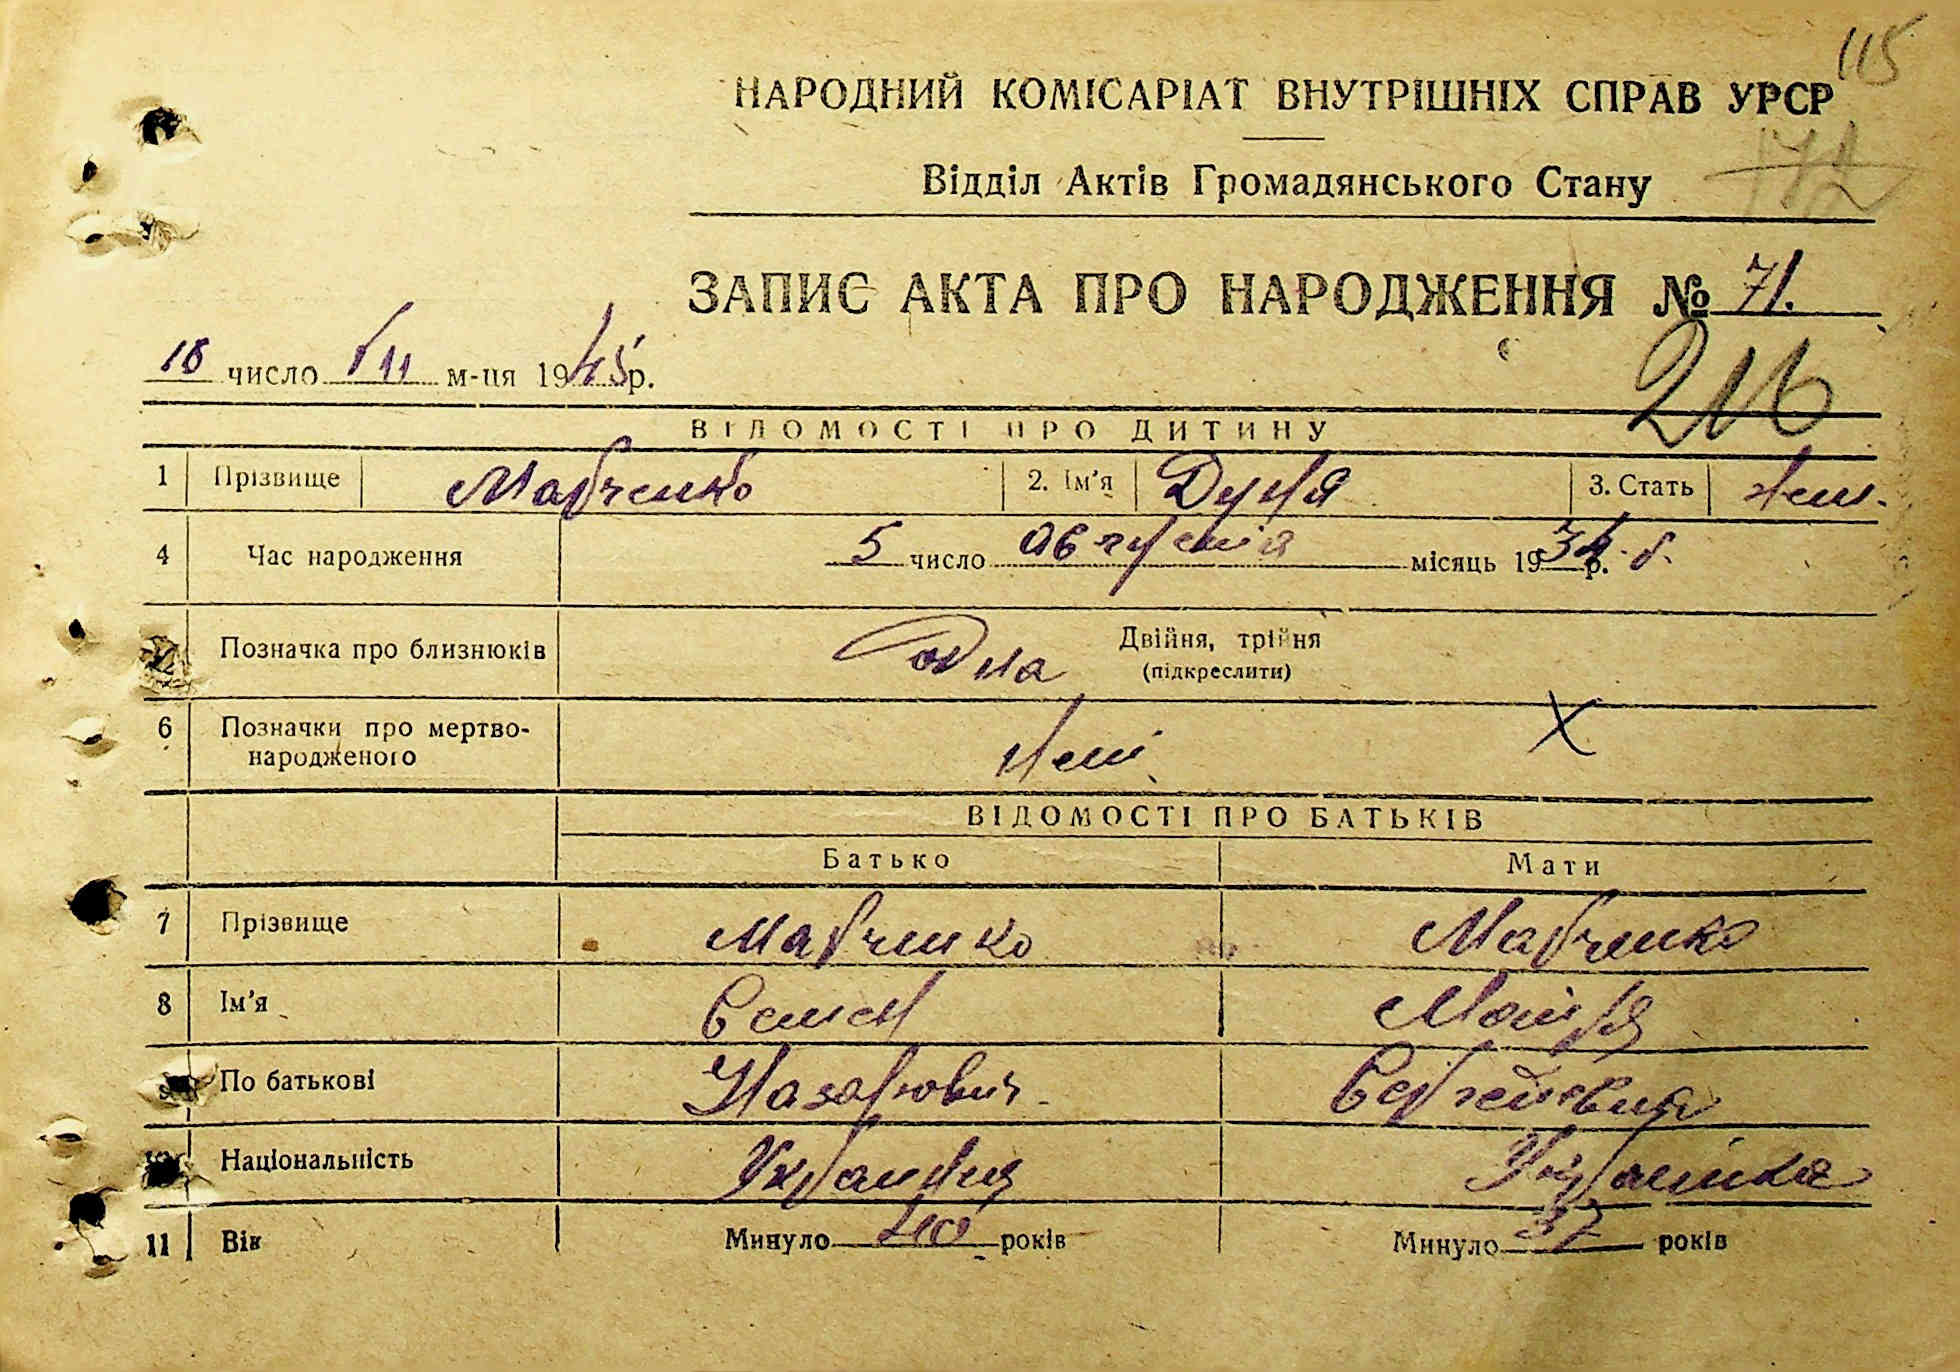 115
НАРОДНИЙ КОМІСАРІАТ ВНУТРІШНІХ СПРАВ УРСР
Відділ Актів Громадянського Стану
ЗАПИС АКТА ПРО НАРОДЖЕННЯ № 71.
18 число VIII м-ця 1945 р.
ВІДОМОСТІ ПРО ДИТИНУ
1 Прізвище Марченко 2. Ім'я Дуня 3. Стать жен.
4 Час народження 5 число августа місяць 1934 р.
Позначка про близнюків одна Двійня, трійня
(підкреслити)
6 Позначки про мертво-
народженого Нет
ВІДОМОСТІ ПРО БАТЬКІВ
Батько Мати
7 Прізвище Марченко Марченко
8 Ім'я Семен Мотря
9 По батькові Назарович Сергеевна
10 Національність Украинец Українка
11 Вік Минуло 40 років Минуло 37 років